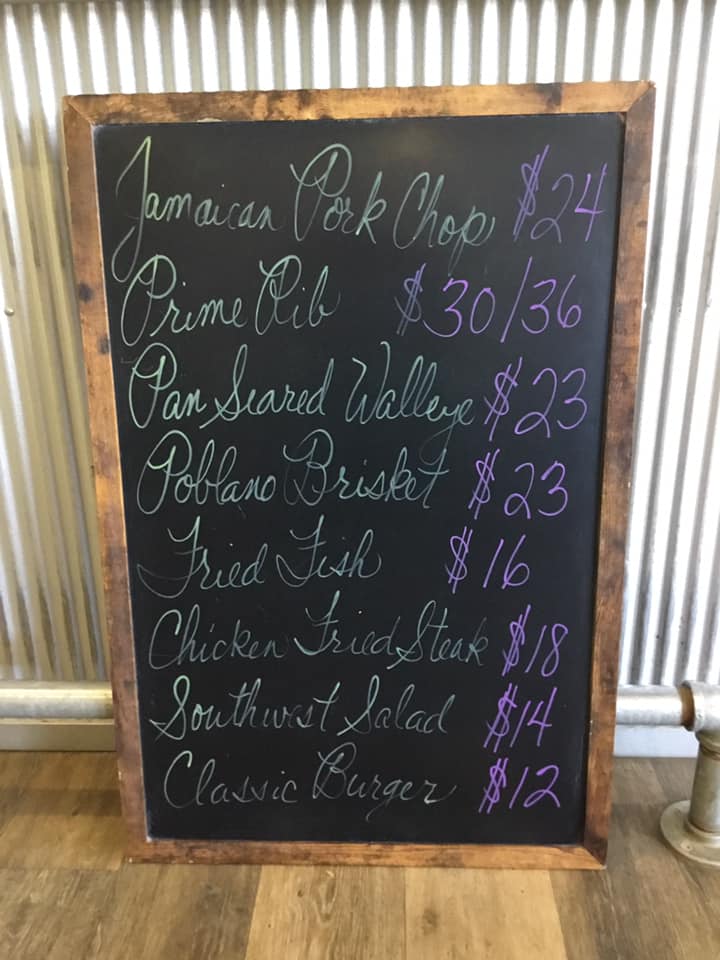 Jamaican Pork Chop $24
Prime Rib $30/36
Pan Seared Walleye $23
Poblano Brisket $23
Fried Fish $16
Chicken Fried Steak $18
Southwest Salad $14
Classic Burger $12